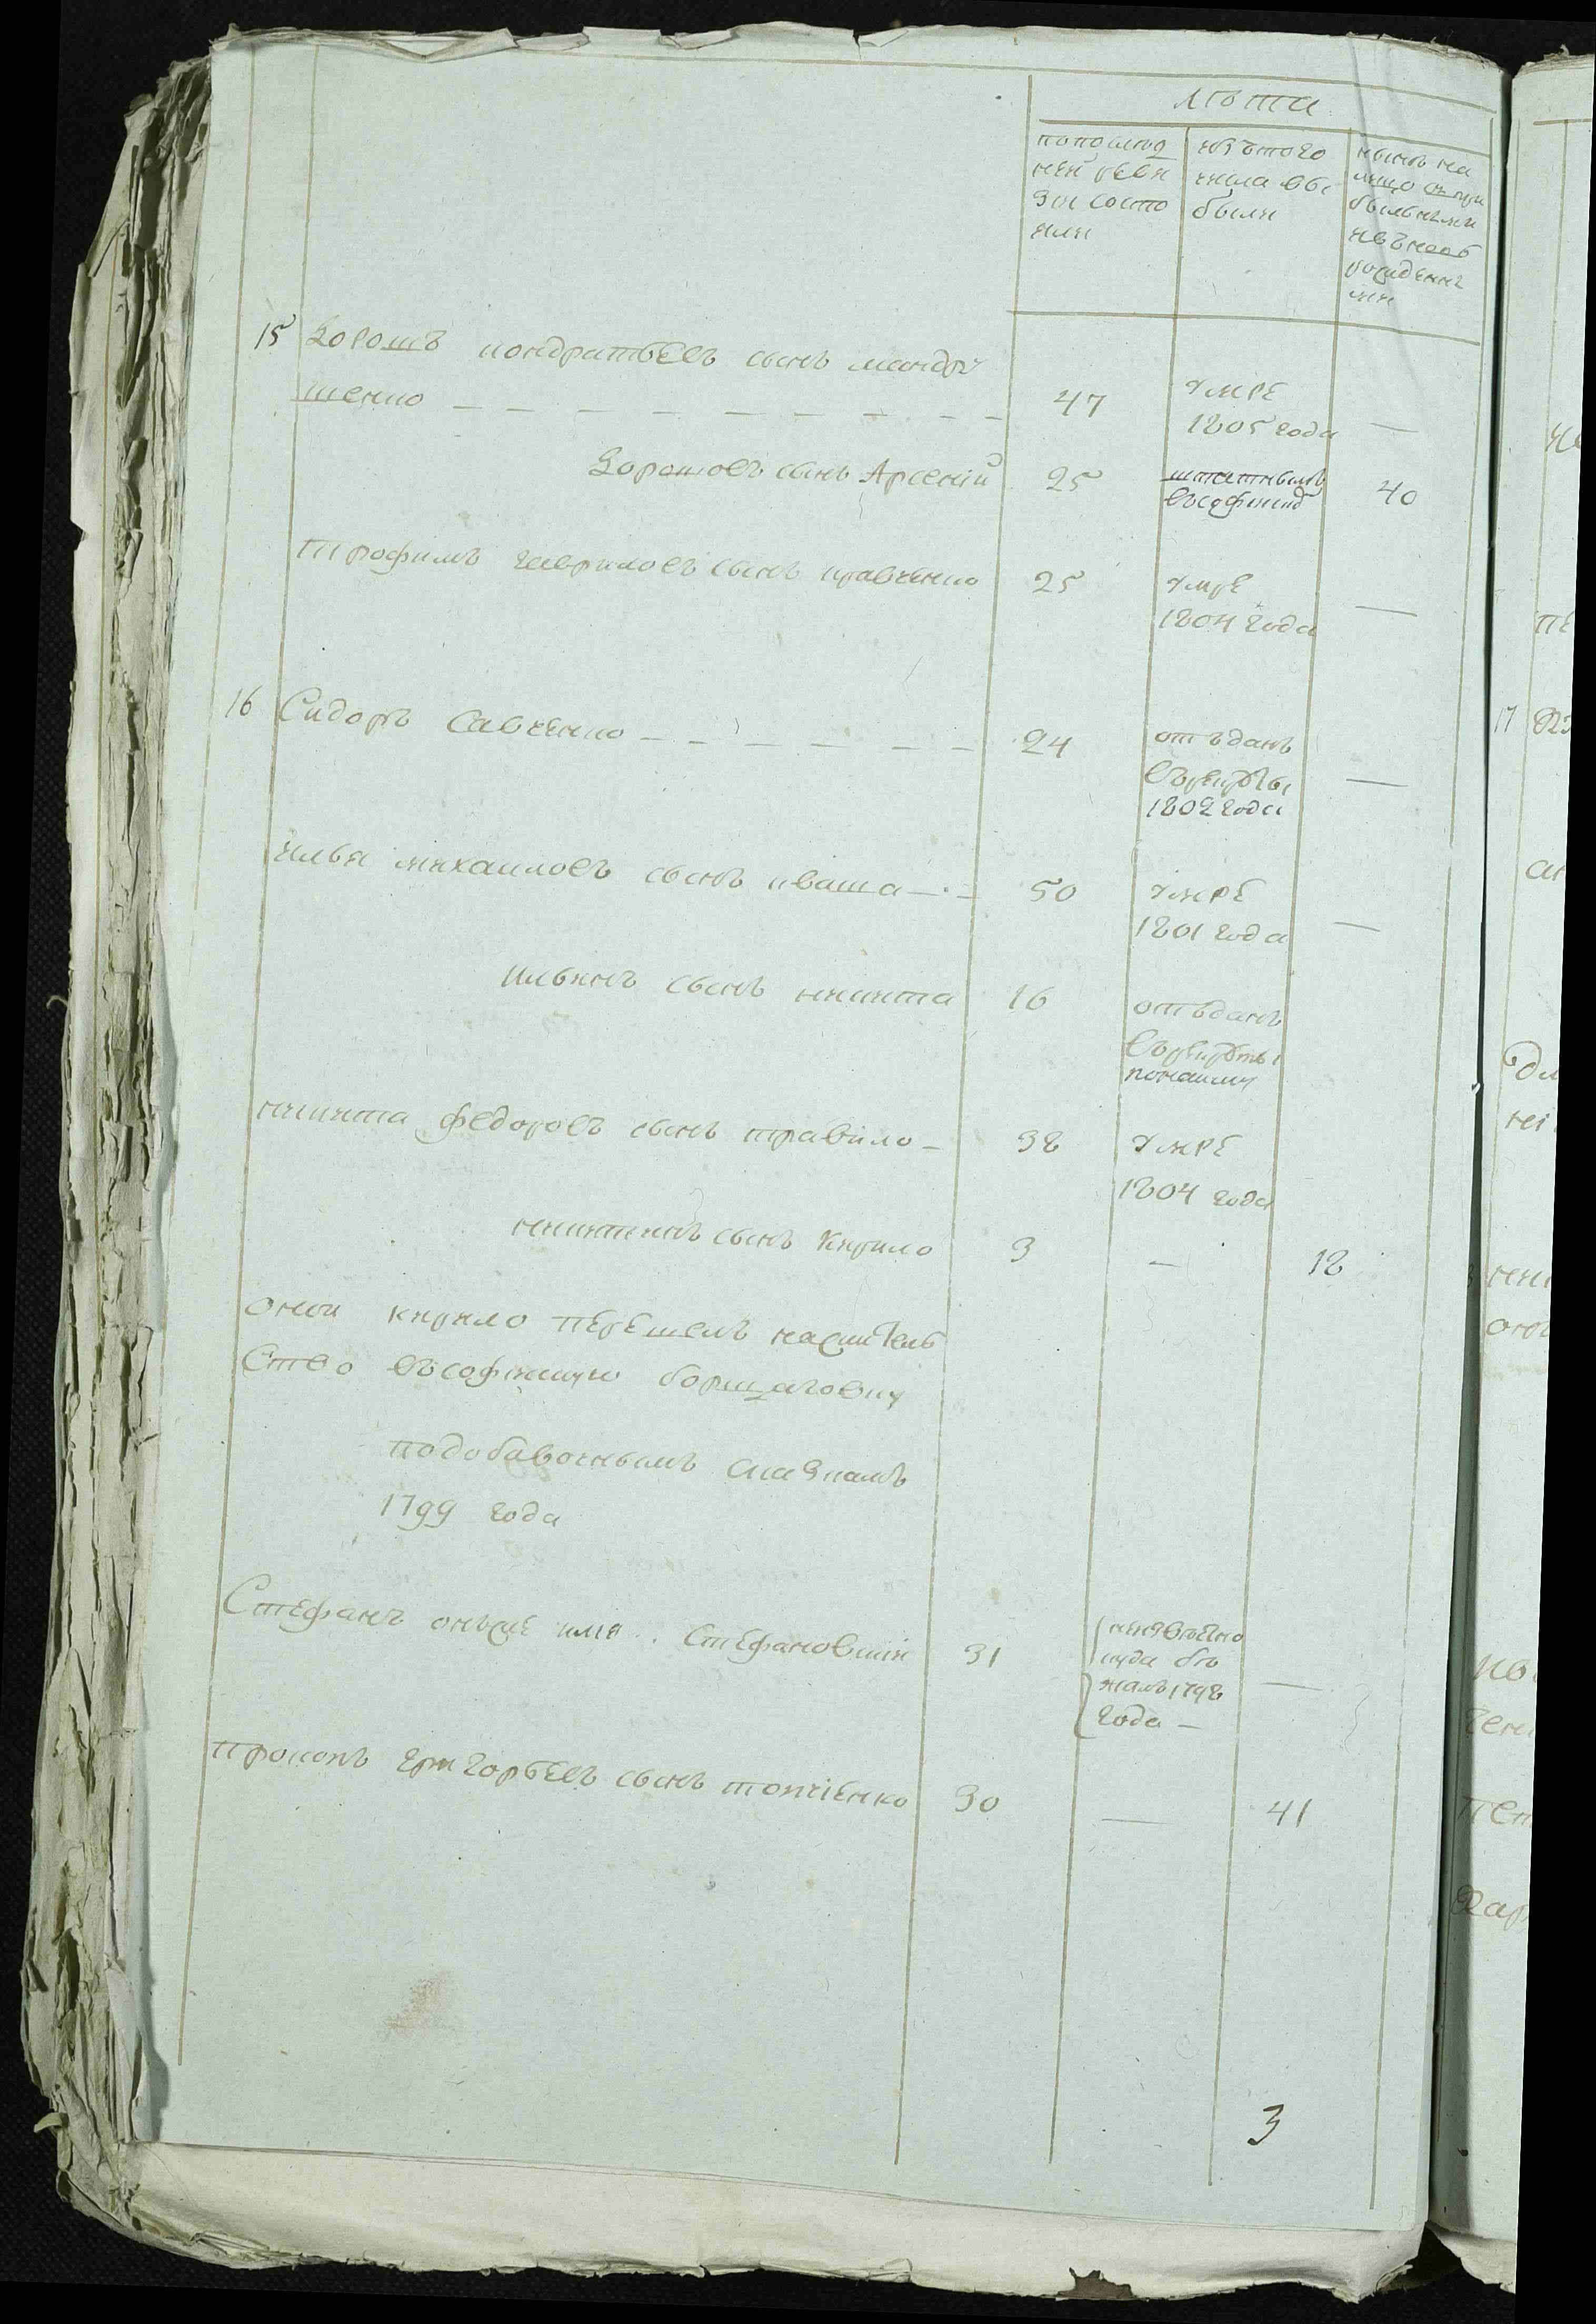 лѣта
попослѣд
ней реви
зіи состо
яли
изътого
числа вы
были
нынѣ на
лицо съ при
былыми
ивъновь
рожденны
ми
15 Дорошъ кондратьевъ сынъ мандри
шенко 47 умре
1805 года —
Дорошовъ сынъ Арсеній 25 штатнымъ 40
Трофимъ гавриловъ сынъ кравченко 25 умре
1804 года —
16 Сидоръ Савченко 24 отъданъ
върекруты —
1802 года
илья михаиловъ сынъ иваша 50 умре
1801 года —
ильинъ сынъ никита 16 отъданъ
Върекруты
никита федоровъ сынъ травило 38 умре
1804 года
никитинъ сынъ кирило 3 — 18
оной кирило перешелъ нажитель
Ство въсофіискую борщаговку
подобавочнымъ сказкамъ
1799 года
Стефанъ онъже илія Стефановскій 31 неизвѣстно
куда бѣ
жалъ 1798 —
года —
прокопъ григорьевъ сынъ топчіенко 30 — 41
3
17